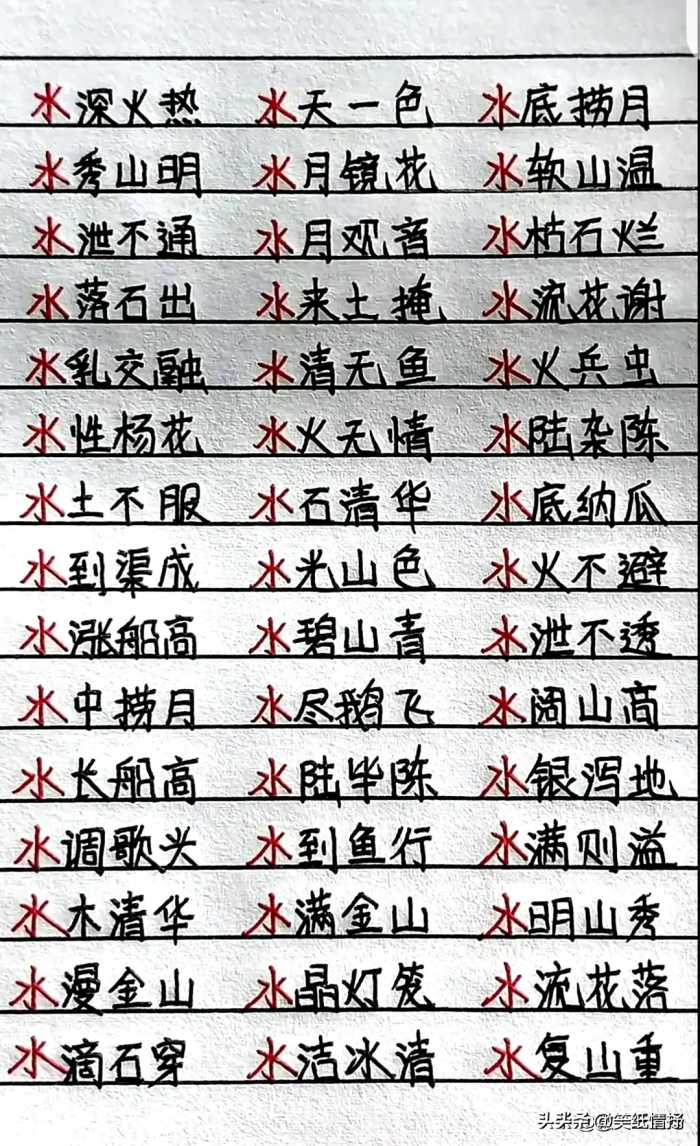 水深火热 水天一色 水底捞月
水秀山明 水月镜花 水软山温
水泄不通 水月观音 水枯石烂
水落石出 水来土掩 水流花谢
水乳交融 水清无鱼 水火兵虫
水性杨花 水火无情 水陆杂陈
水土不服 水石清华 水底纳瓜
水到渠成 水光山色 水火不避
水涨船高 水碧山青 水泄不透
水中捞月 水尽鹅飞 水阔山高
水长船高 水陆毕陈 水银泻地
水调歌头 水到鱼行 水满则溢
水木清华 水满金山 水明山秀
水漫金山 水晶灯笼 水流花落
水滴石穿 水洁冰清 水复山重
头条号@笑纸情抒